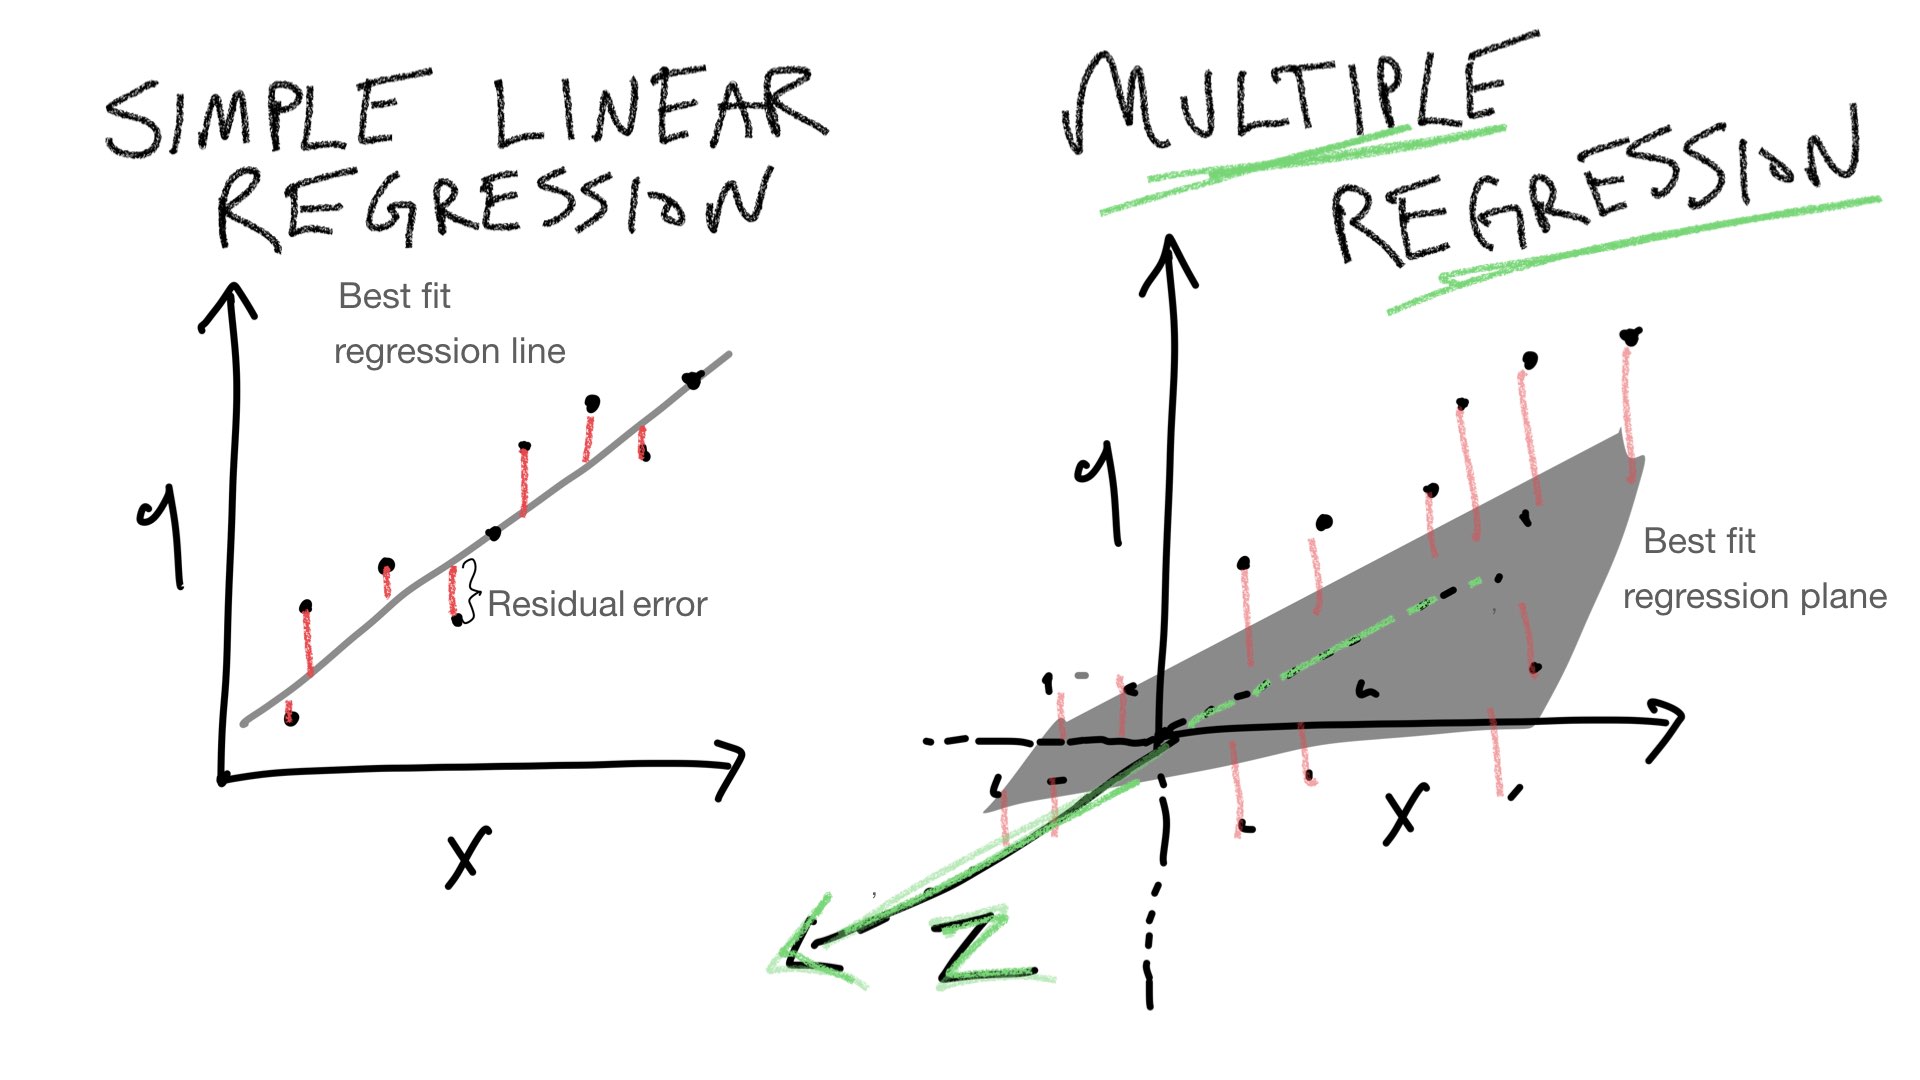 SIMPLE LINEAR
REGRESSION
Best fit
regression line
y
Residual error
x
MULTIPLE
REGRESSION
y
Best fit
regression plane
x
z